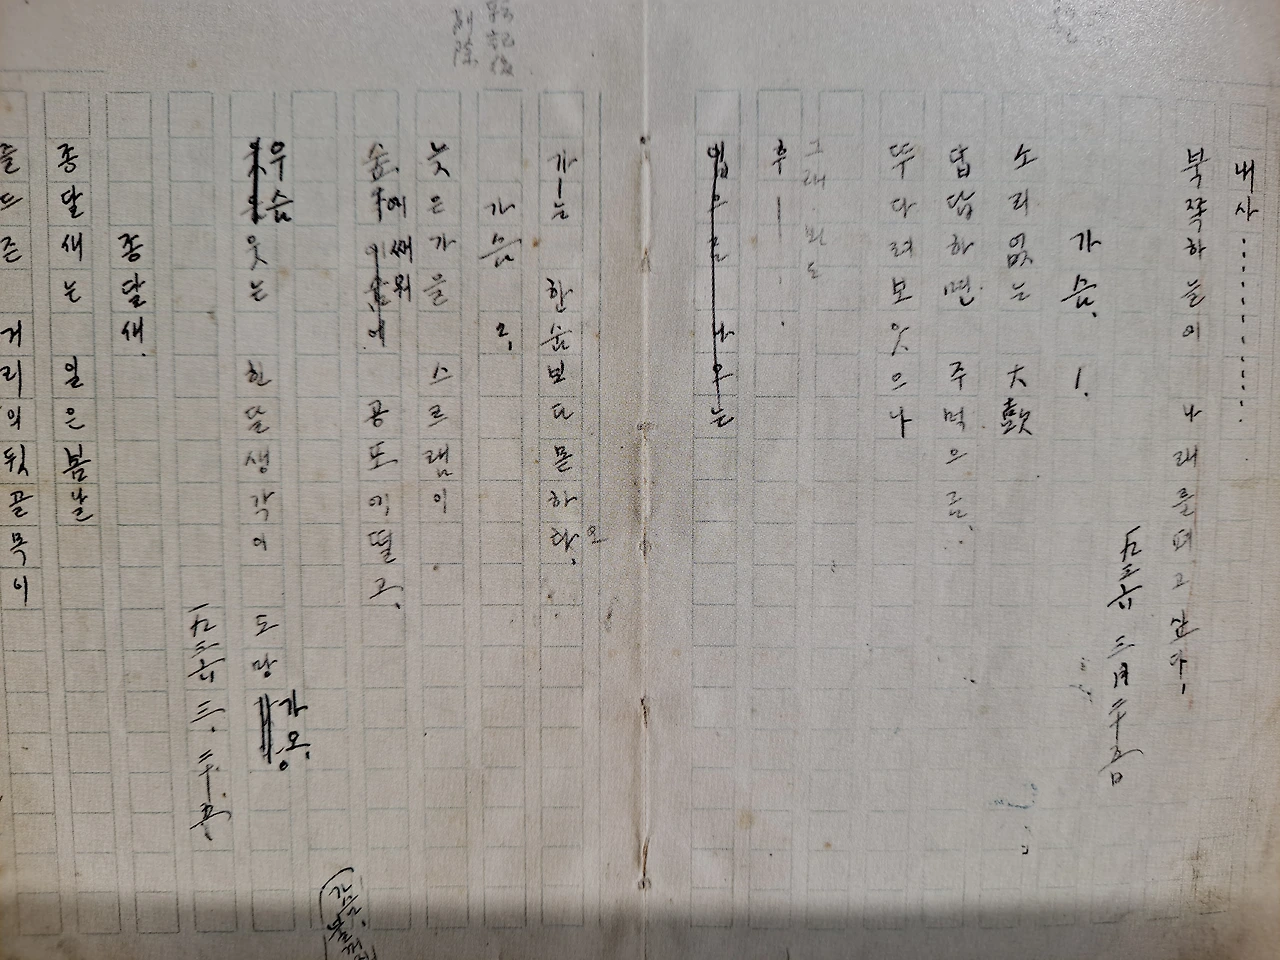 내사……………
북쪽하늘에 나래를펴고싶다.
一九三六 三月二十五日
가슴. 1.
소리없는 大鼓
답답하면 주먹으로.
뚜다려보앗으나
그래 봐도
후——.
가ㅡ는 한숨보다몯하오.
가슴 2.
늦은가을 스르램이
숲에쌔워 공포에떨고.
우슴웃는 흰달생각이 도망가오.
一九三六. 三. 二十五.
종달새.
종달새는 일은봄날
즐드즌 거리의뒷골목이